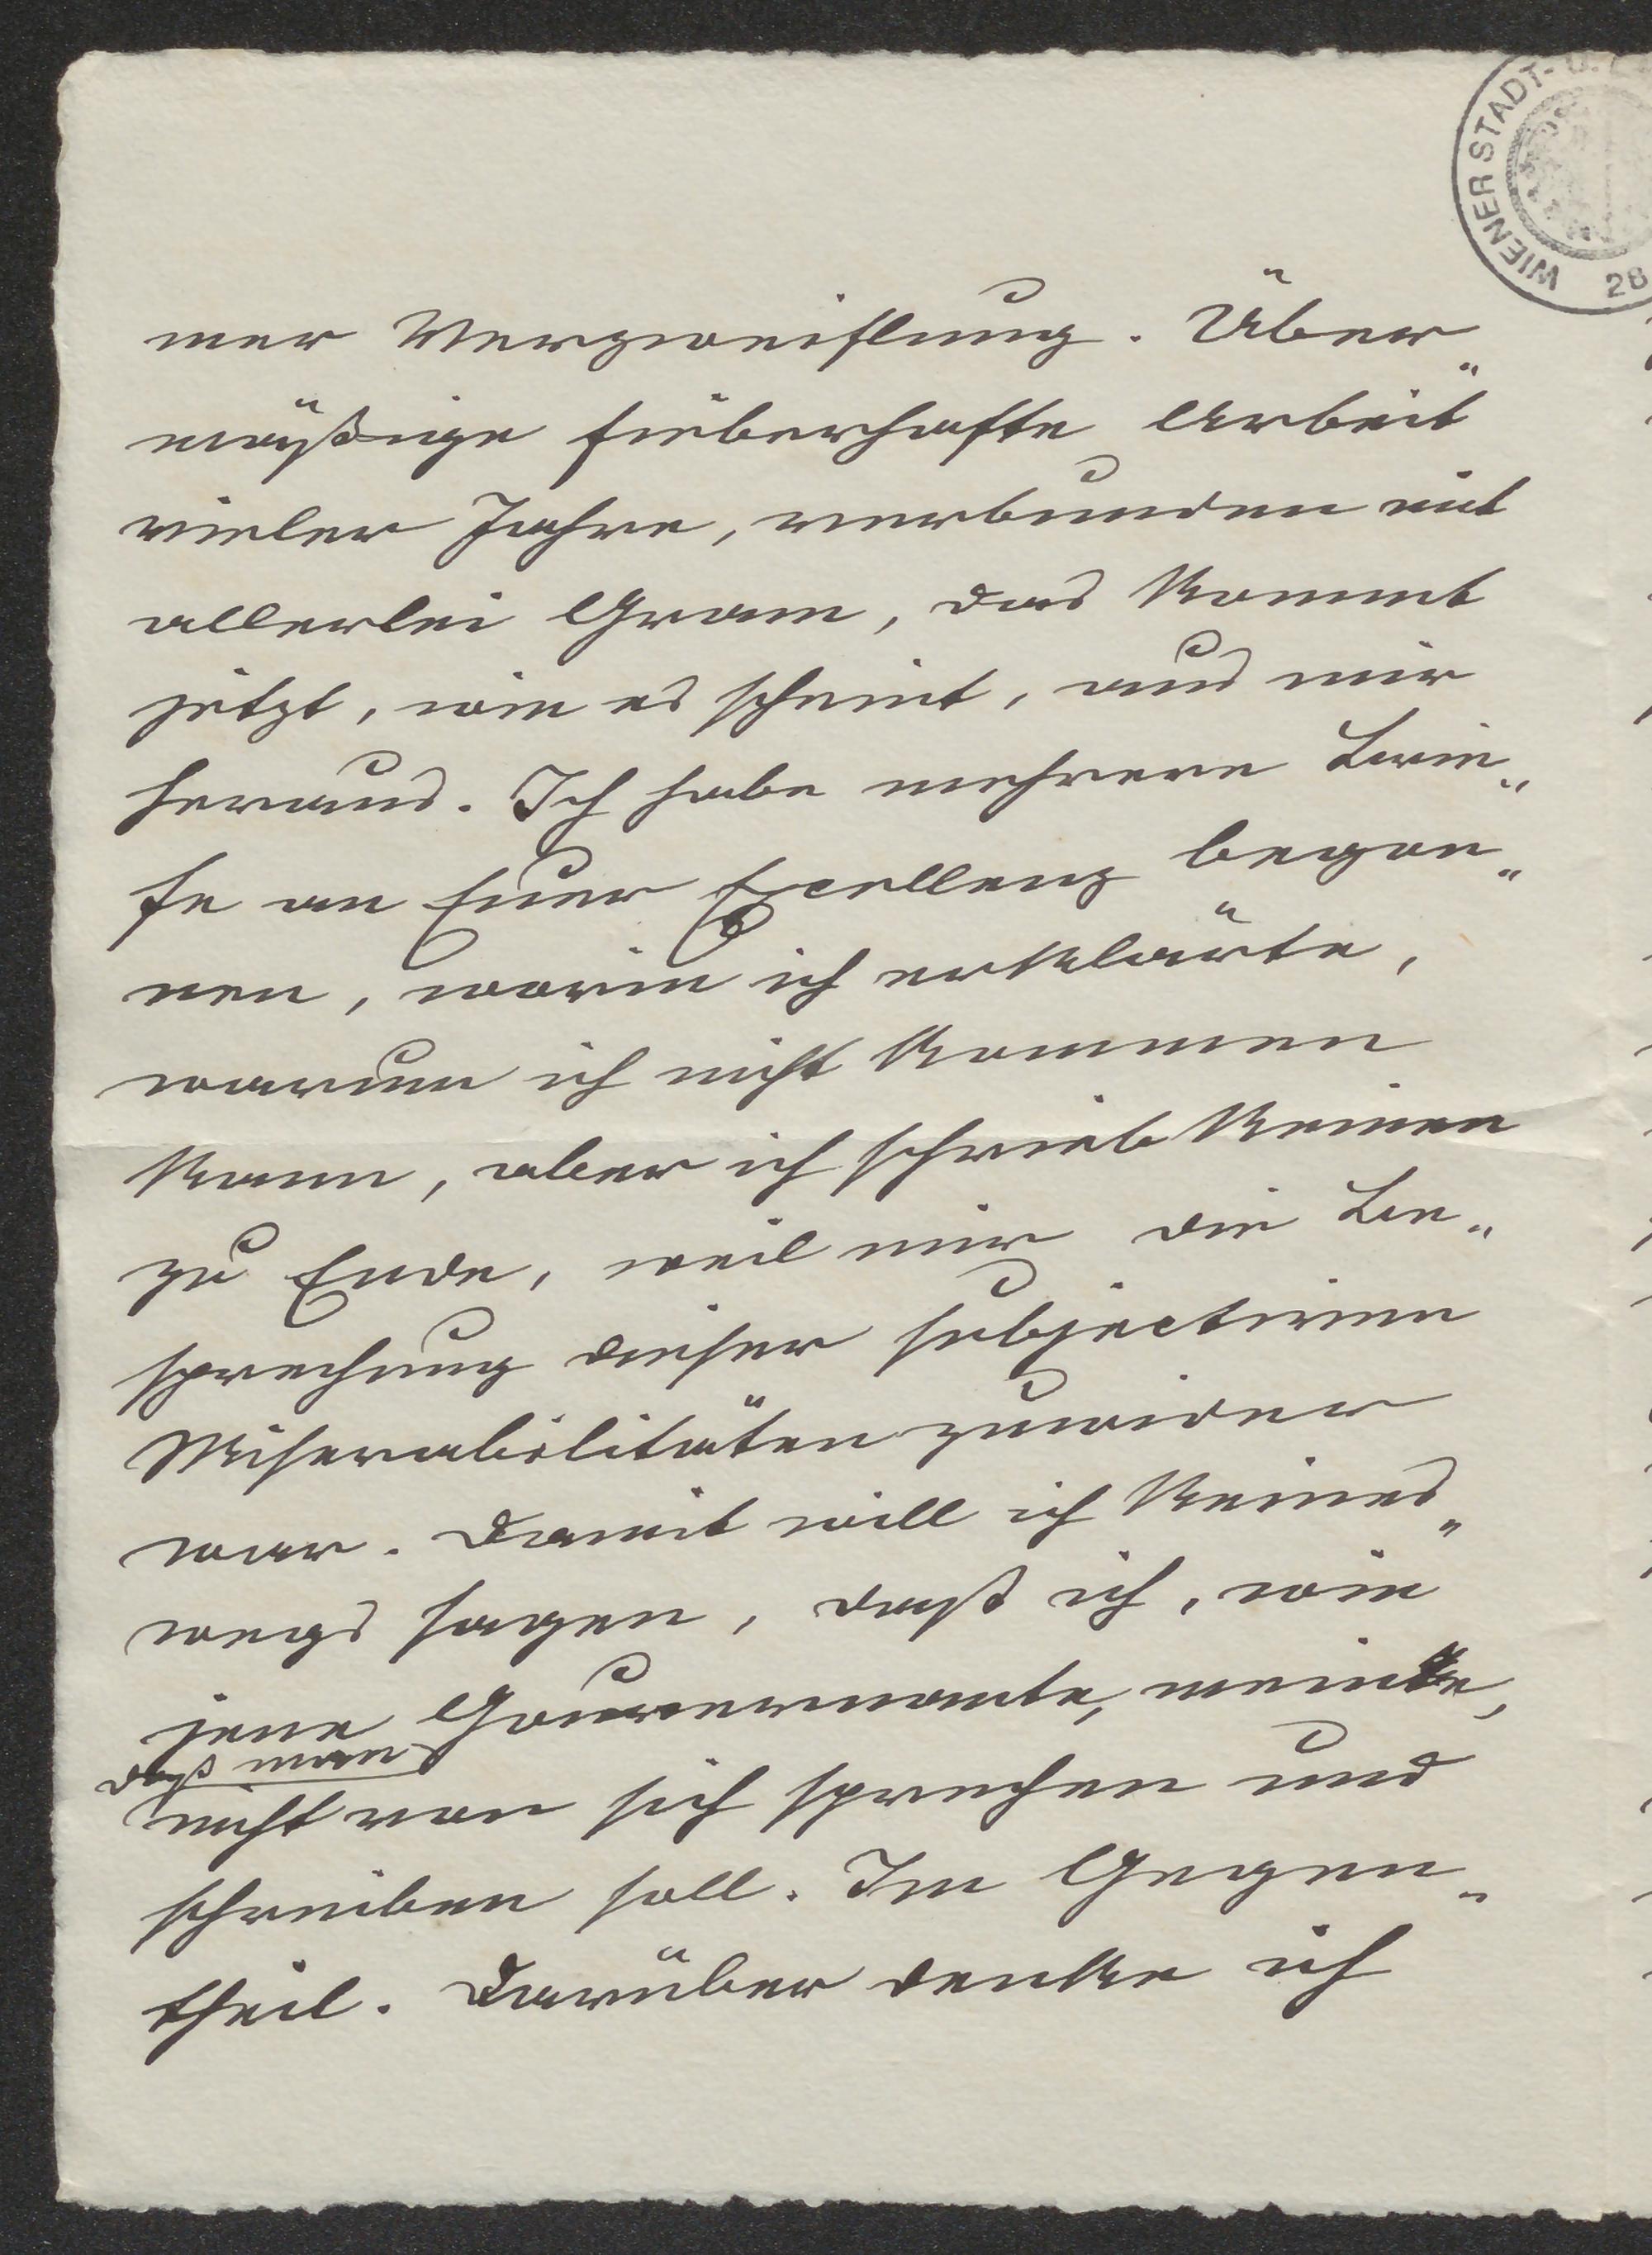 WIENER STADT- U.
28
mer Verzweiflung. Über„
mäßige fieberhafte Arbeit
vieler Jahre, verbunden mit
allerlei Gram, das kommt
jetzt, wie es scheint, aus mir
heraus. Ich habe mehrere Brie„
fe an Euer Excellenz begon„
nen, worin ich erklärte,
warum ich nicht kommen
kann, aber ich schrieb keinen
zu Ende, weil mir die Be„
sprechung dieser subjectiven
Miserabilitäten zuwider
war. Damit will ich keines„
wegs sagen, daß ich, wie
jene Gouvernante, meinte,
daß man
nicht von sich sprechen und
schreiben soll. Im Gegen„
theil. Darüber denke ich